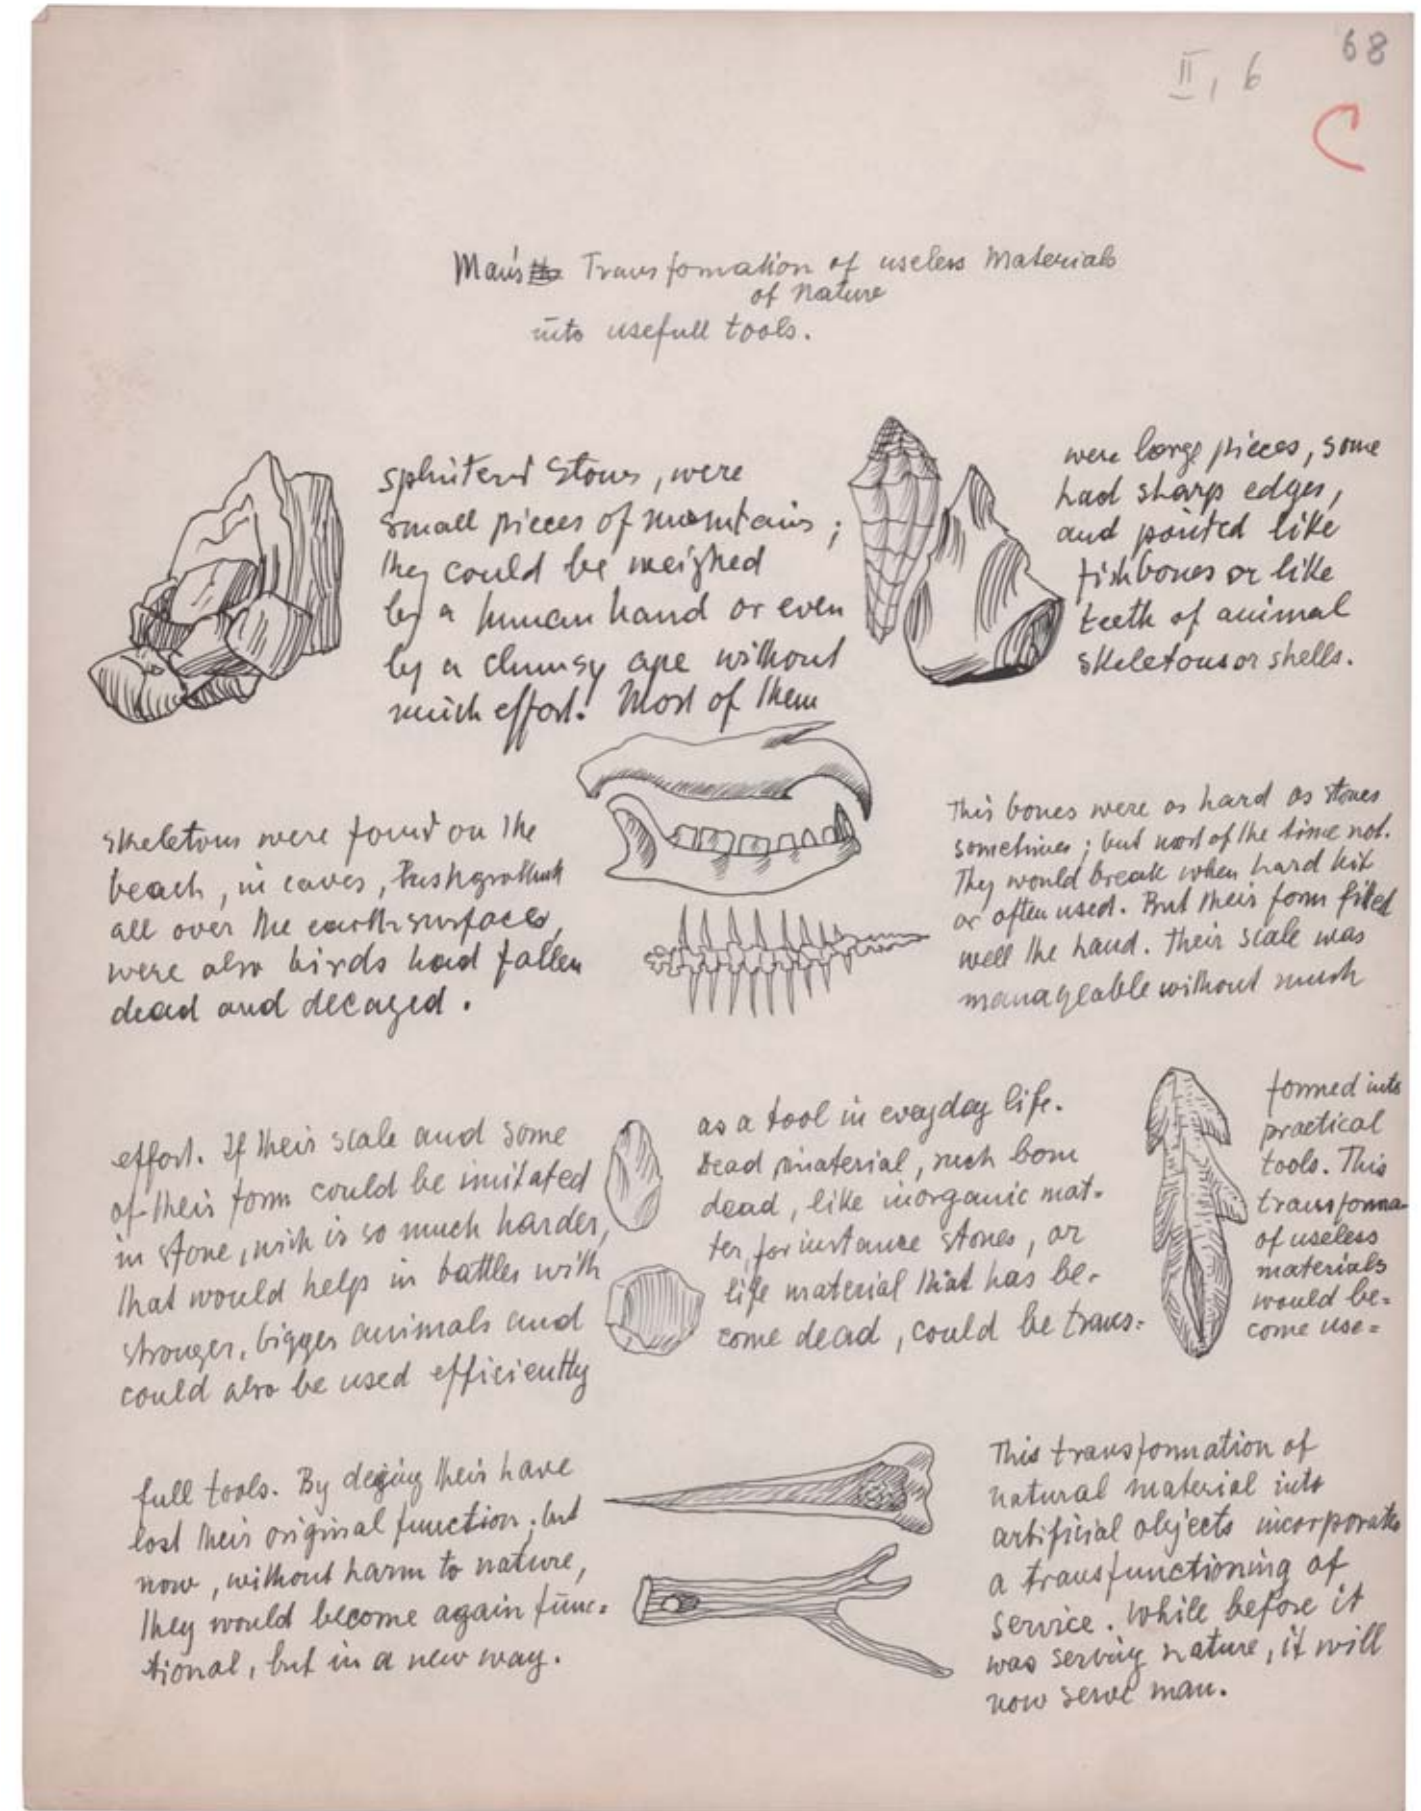 68
II, 6
C
Man's Transfomation of useless Materials
of Nature
into usefull tools.
splintered stones, were
small pieces of mountains;
they could be weighed
by a human hand or even
by a clumsy ape without
much effort! Most of them
were large pieces, some
had sharp edges,
and pointed like
fishbones or like
teeth of animal
skeletons or shells.
skeletons were found on the
beach, in caves,
all over the earth surfaces,
were also birds had fallen
dead and decayed.
This bones were as hard as stones
sometimes; but most of the time not.
They would break when hard hit
or often used. But their form fited
well the hand. Their scale was
manageable without much
effort. If their scale and some
of their form could be imitated
in stone, wich is so much harder,
that would helps in battles with
stronger, bigger animals and
could also be used efficiently
as a tool in everyday life.
Dead material, such born
dead, like inorganic mat-
ter, for instance stones, or
life material that has be-
come dead, could be trans-
formed into
practical
tools. This
transforma-
of useless
materials
would be-
come use-
full tools. By their have
lost their original function; but
now, without harm to nature,
they would become again func-
tional, but in a new way.
This transformation of
natural material into
artificial objects incorporates
a transfunctioning of
service. While before it
was serving nature, it will
now serve man.